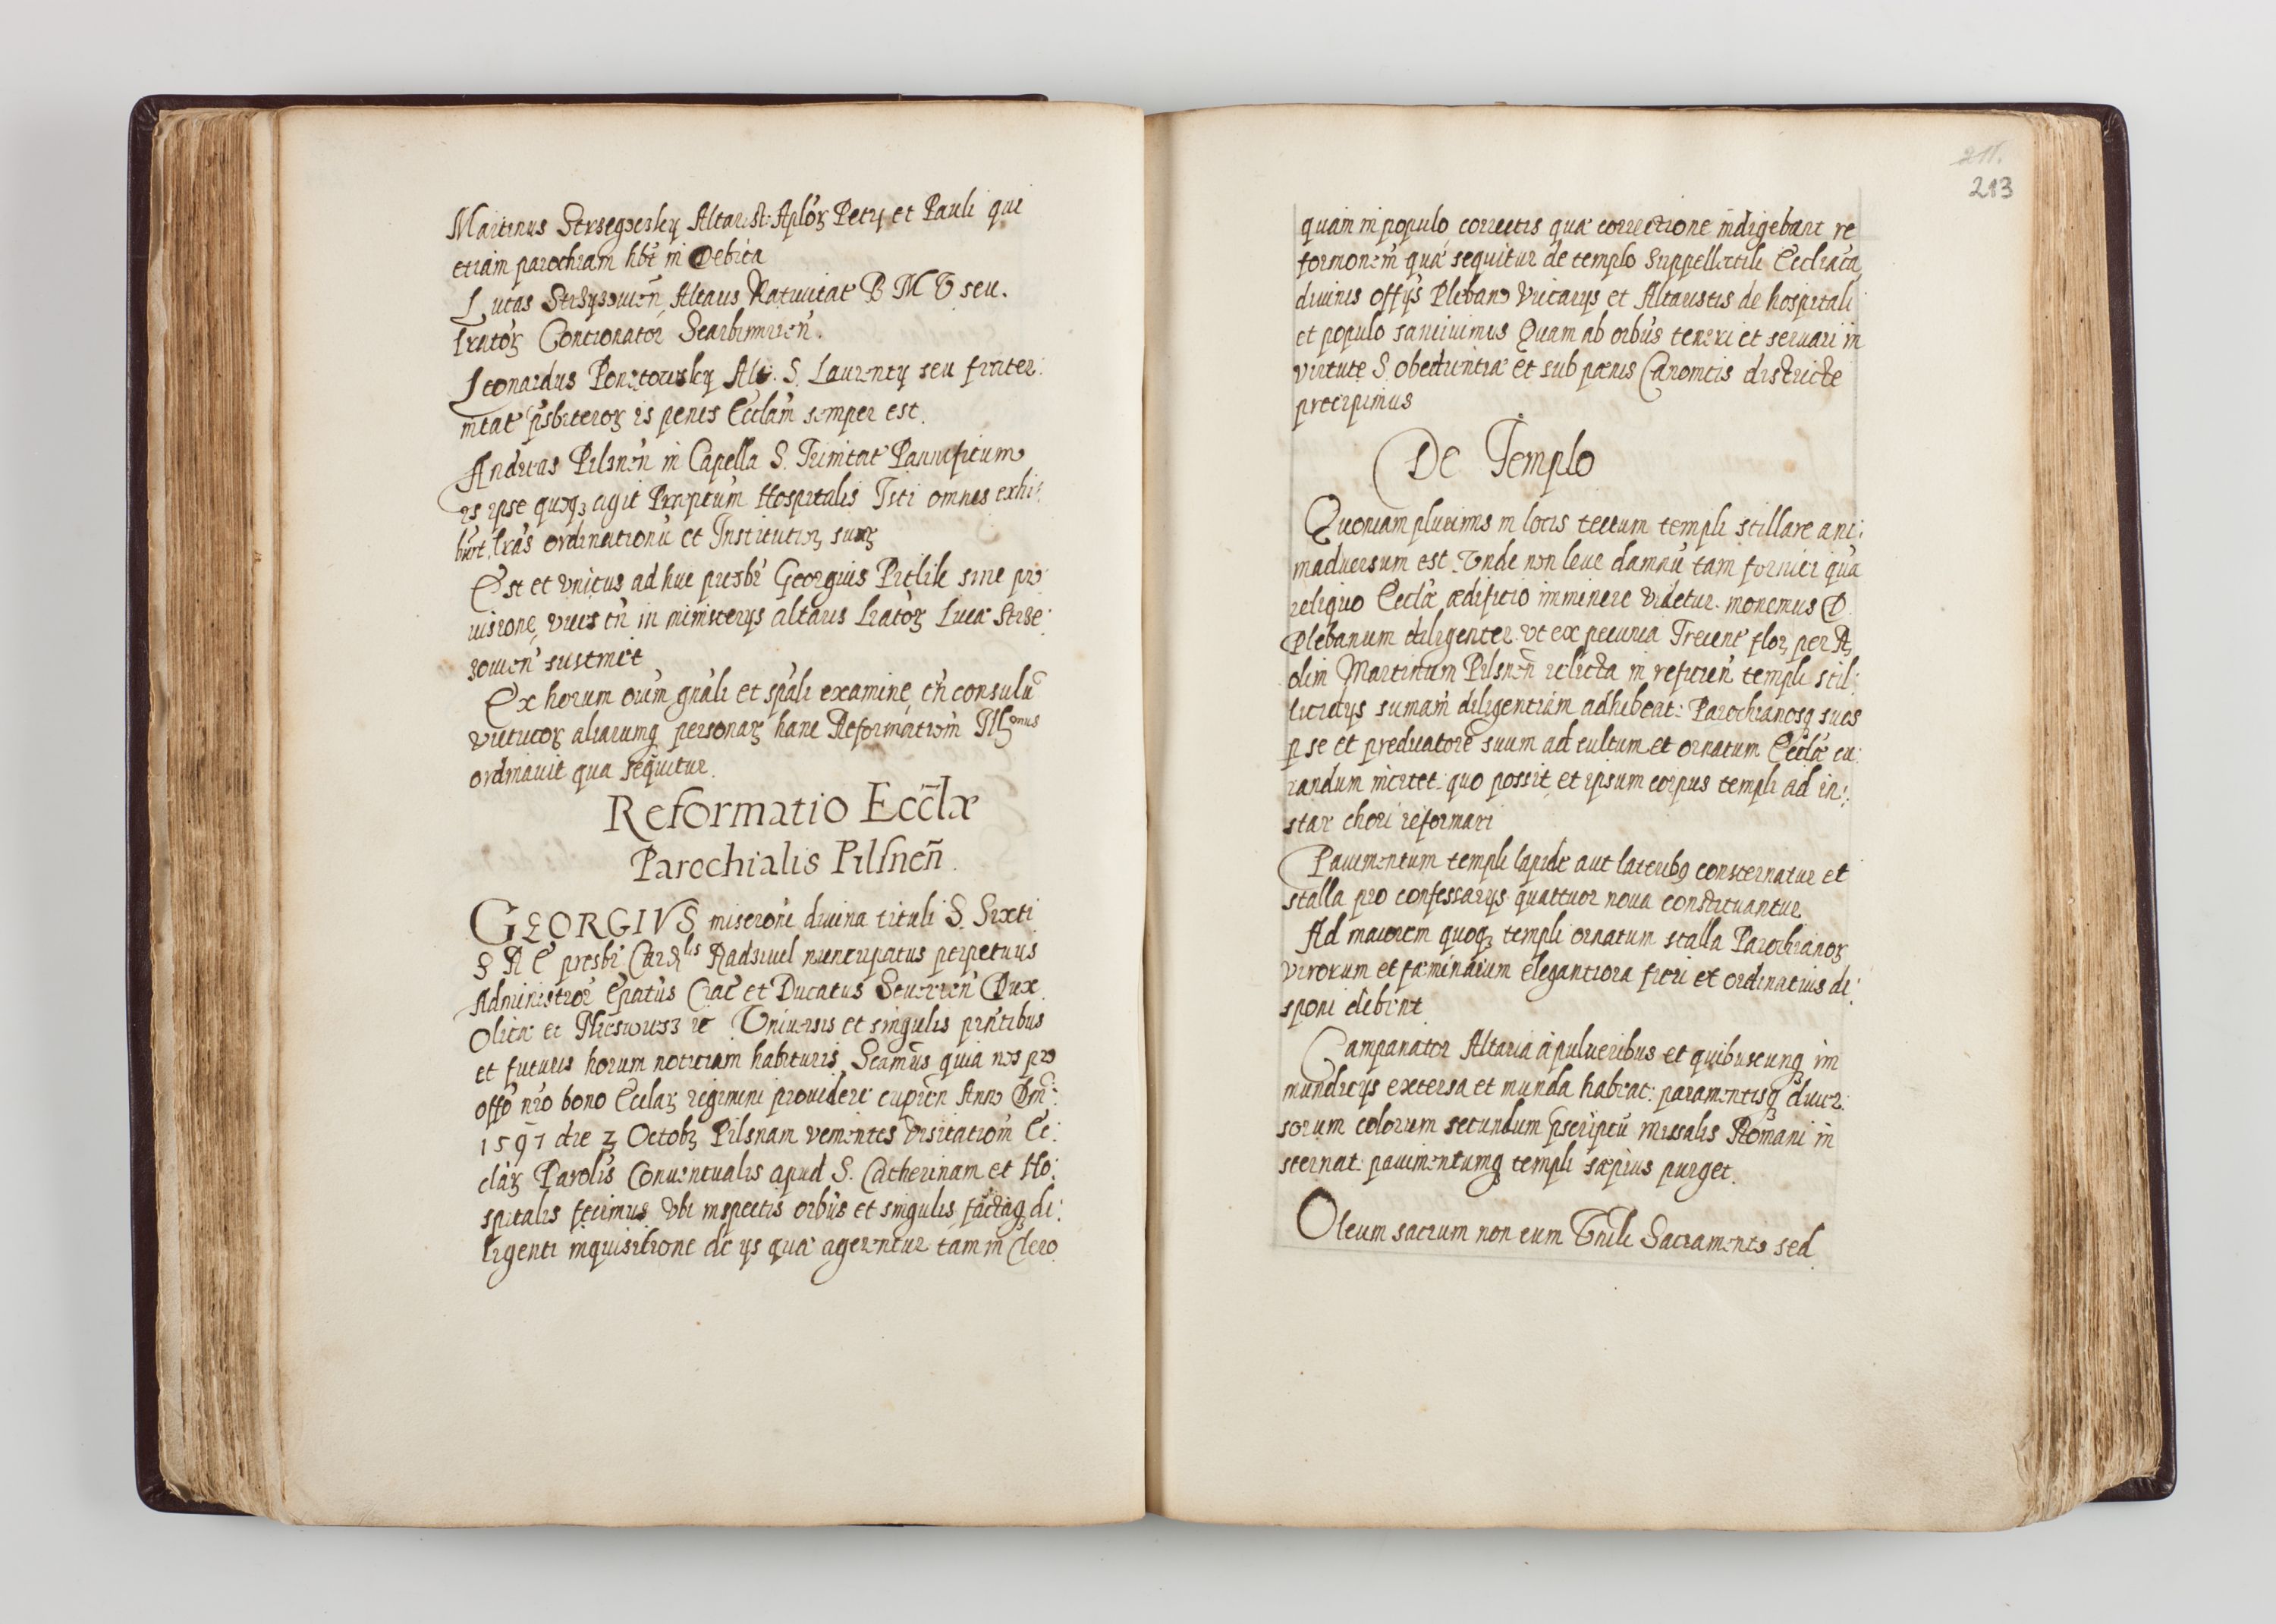 Martinus Strsegoersky Altarist: Aplōꝝ Petrӱ et Pauli qui
etiam parochiam hb̄t in Debica
Lucas Strzyzowien̄ Altaris Natiuitat B M V seu.
lratōꝝ Concionator Scarbimirien̄.
Leonardus Ponetowsky Alt. S. Laurenty seu frater:
nitat p̄sbiteroꝝ is penes Eccl̄am semper est.
Andreas Pilsnen̄ in Capella S. Trinitat Pannificum
is ipse quoqꝫ agit Præptum Hospitalis Isti omnes exhi:
bu͞nt lr̄as ordinationū et Institutioꝝ suaꝝ
Est et vnicus ad huc presbr̄ Georgius Pietlik sine pro
uisione, viers tn̄ in ministerys altaris lratōꝝ Luca Strze:
zowien̄ sustinet
Ex horum oīum gn̄ali et sp̄ali examine, tn̄ consulū
vietricoꝝ aliarumqꝫ personaꝝ hanc Reformatiom̄ Ill^mus
ordinauit qua sequitur.
Reformatio Ecclæ
Parochialis Pilsnen̄.
GEORGIVS miseroni diuina tituli S. Sixti
S R E presbr̄ Card^lis Radziuel nuncupatus perpetuus
Administror Epatūs Crac̄ et Ducatus Seuerien̄ Dux
Olica et Nieswiesz ꝛc Vniuersis et singulis prn̄tibus
et futuris horum notitiam habituris Scamūs quia nos pro
offo nr̄o bono Eccl̄aꝝ regimini prouidere cupien̄ Anno Dn̄i:
1597 die 3 Octobꝫ Pilsnam venientes visitatiom̄ Ec:
cl̄aꝝ Paroli͞s Conuentualis apud S. Catherinam et Ho:
spitalis fecimus vbi inspectis oib͞us et singulis factaqꝫ di:
ligenti inquisitione de ys qua agerentur tam in Clero
211.
213
quam in populo, correctis qua correctione indigebant re
formonem̄ qua sequitur de templo Suppellectili Eccliaca
diuinis offys Plebano Vicarys et Altaristis de hospitali
et populo sanciuimus Quam ab oib͞us teneri et seruari in
virtute S. obedientia et sub pœnis Canonicis districte
precipimus
De Templo
Quoniam plurimis in locis tectum templi stillare ani:
maduersum est. Vnde non leue damnū tam fornici quā
reliquo Ecclæ ædificio imminere videtur. monemus D.
Plebanum diligenter vt ex pecunia Trecent̄ floꝝ per R.
olim Martinum Pilsnen̄ relicta in reficien̄ templi stil:
licidys sumam̄ diligentiam adhibeat: Parochianosqꝫ suos
ꝑ se et preduatorē suum ad cultum et ornatum Ecclæ cu:
randum incitet. quo possit, et ipsum corpus templi ad in:
star chori reformari
Pauimentum templi lapide aut lateribꝰ consternatur et
stalla pro confessarys quattuor noua constituantur
Ad maiorem quoqꝫ templi ornatum stalla Parochianoꝝ
virorum et fœminarum elegantiora fieri et ordinatius di:
sponi debent
Campanator Altaria a pulueribus et quibuscunqꝫ im
mundicys extersa et munda habeat: paramentisqꝫ diuer:
sorum colorum secundum ꝑscriptū missalis Romani in
sternat: pauimentumqꝫ templi sæpius purget.
Oleum sacrum non cum Vn̄li Sacramento sed